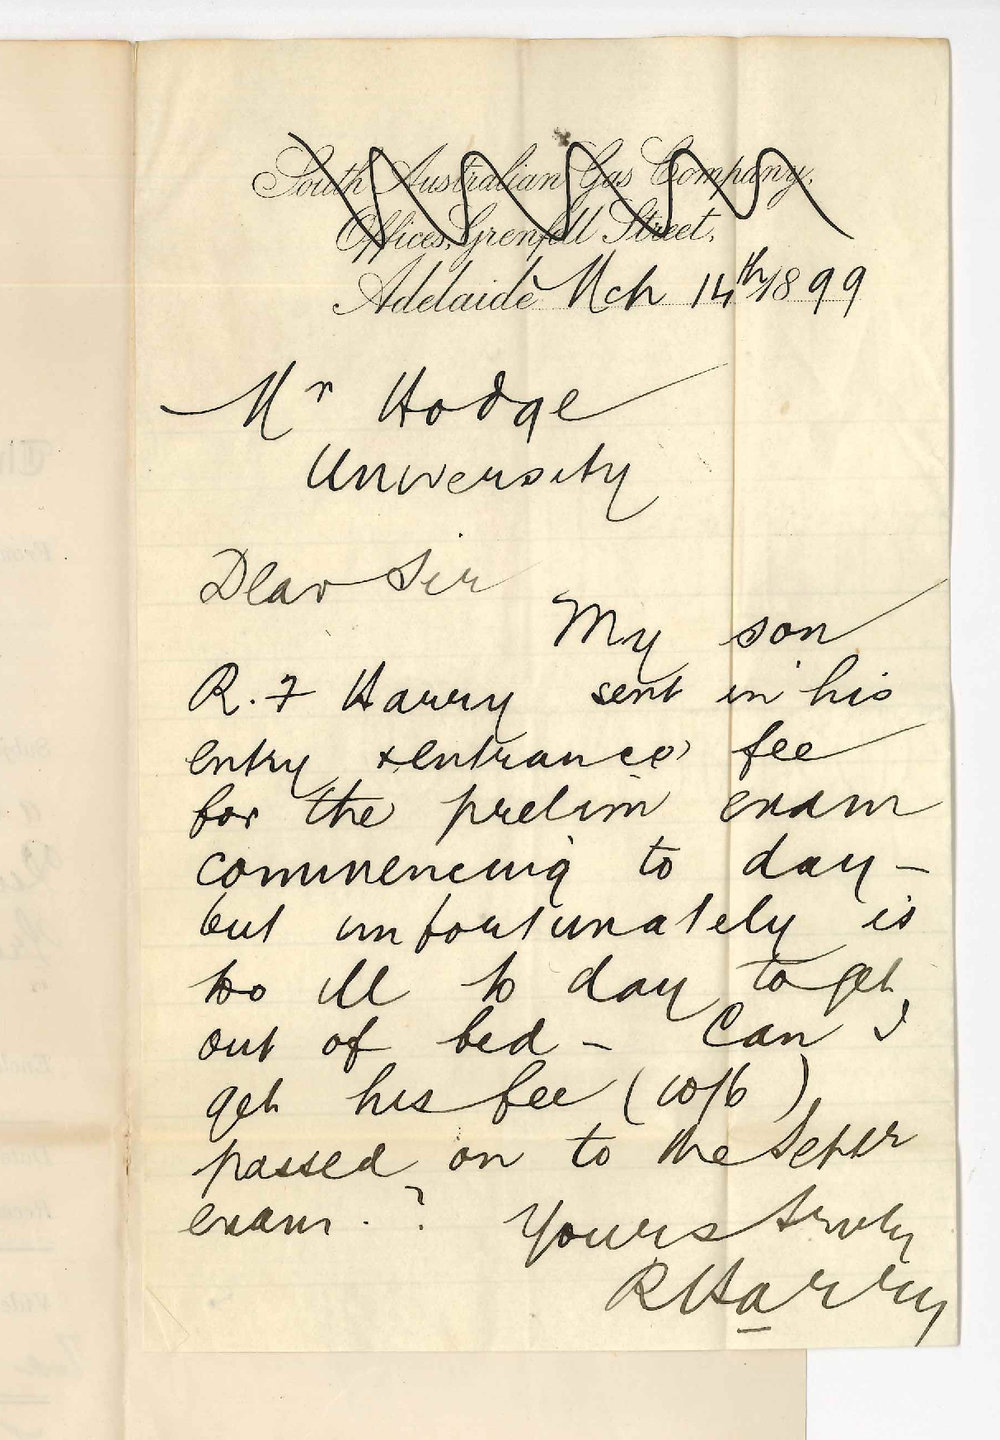 South Australian Gas Company,
Offices, Grenfell Street,
Adelaide Mch 14th 1899
Mr Hodge
University
Dear Sir
My son
R. F Harry sent in his
entry & entrance fee
for the prelim exam
commencing to day –
but unfortunately is
too ill to day to get
out of bed – Can I
get his fee (10/6)
passed on to the Septr
exam. ?
Yours truly
R Harry